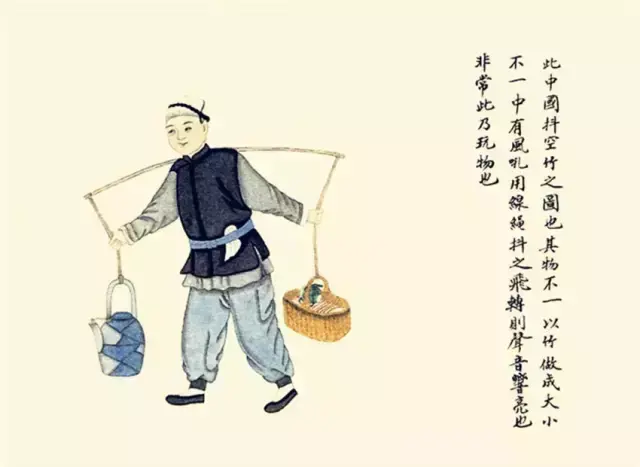 此中國抖空竹之圖也其物不一以竹做成大小
不一中有風吼用線繩抖之飛轉則聲音響亮也
非常此乃玩物也